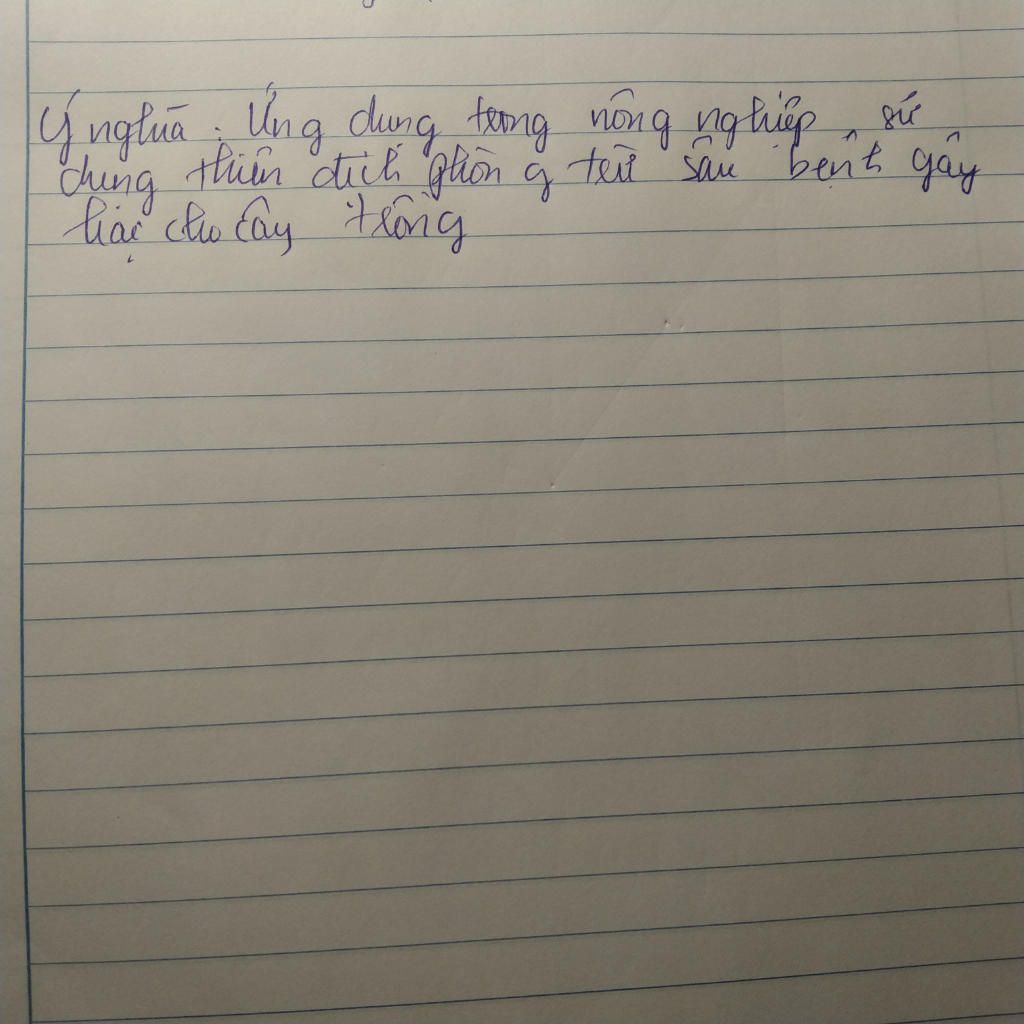 Ý nghĩa : Ứng dụng trong nông nghiệp, sử
dụng thiên địch phòng trừ sâu bệnh gây
hại cho cây trồng